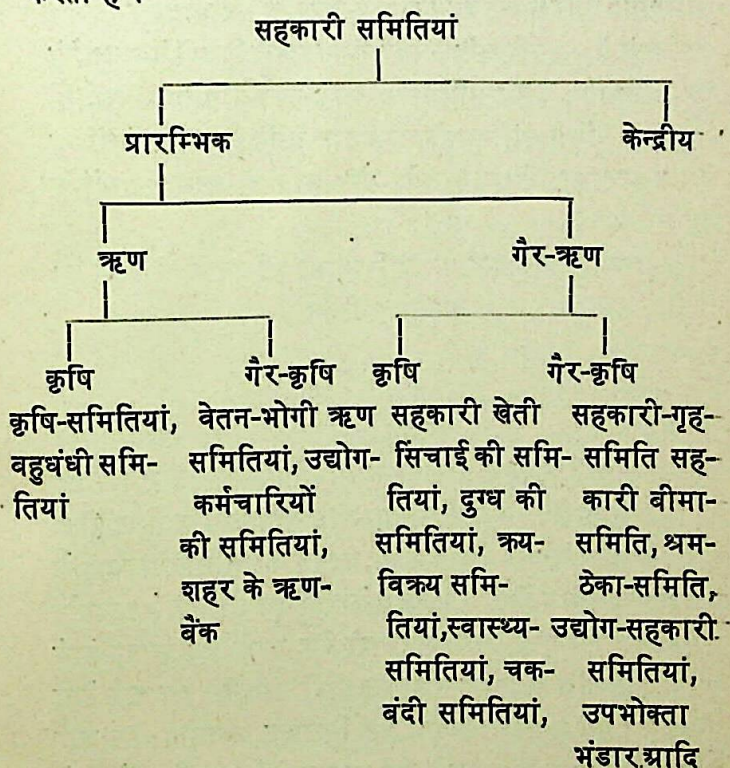 सहकारी समितियां
प्रारम्भिक केन्द्रीय
ऋण गैर-ऋण
कृषि गैर-कृषि कृषि गैर-कृषि
कृषि-समितियां,
वहुधंधी समि-
तियां
वेतन-भोगी ऋण
समितियां, उद्योग-
कर्मचारियों
की समितियां,
शहर के ऋण-
बैंक
सहकारी खेती
सिंचाई की समि-
तियां, दुग्ध की
समितियां, क्रय-
विक्रय समि-
तियां,स्वास्थ्य-
समितियां, चक-
बंदी समितियां,
सहकारी-गृह-
समिति सह-
कारी बीमा-
समिति, श्रम-
ठेका-समिति,
उद्योग-सहकारी
समितियां,
उपभोक्ता
भंडार आदि